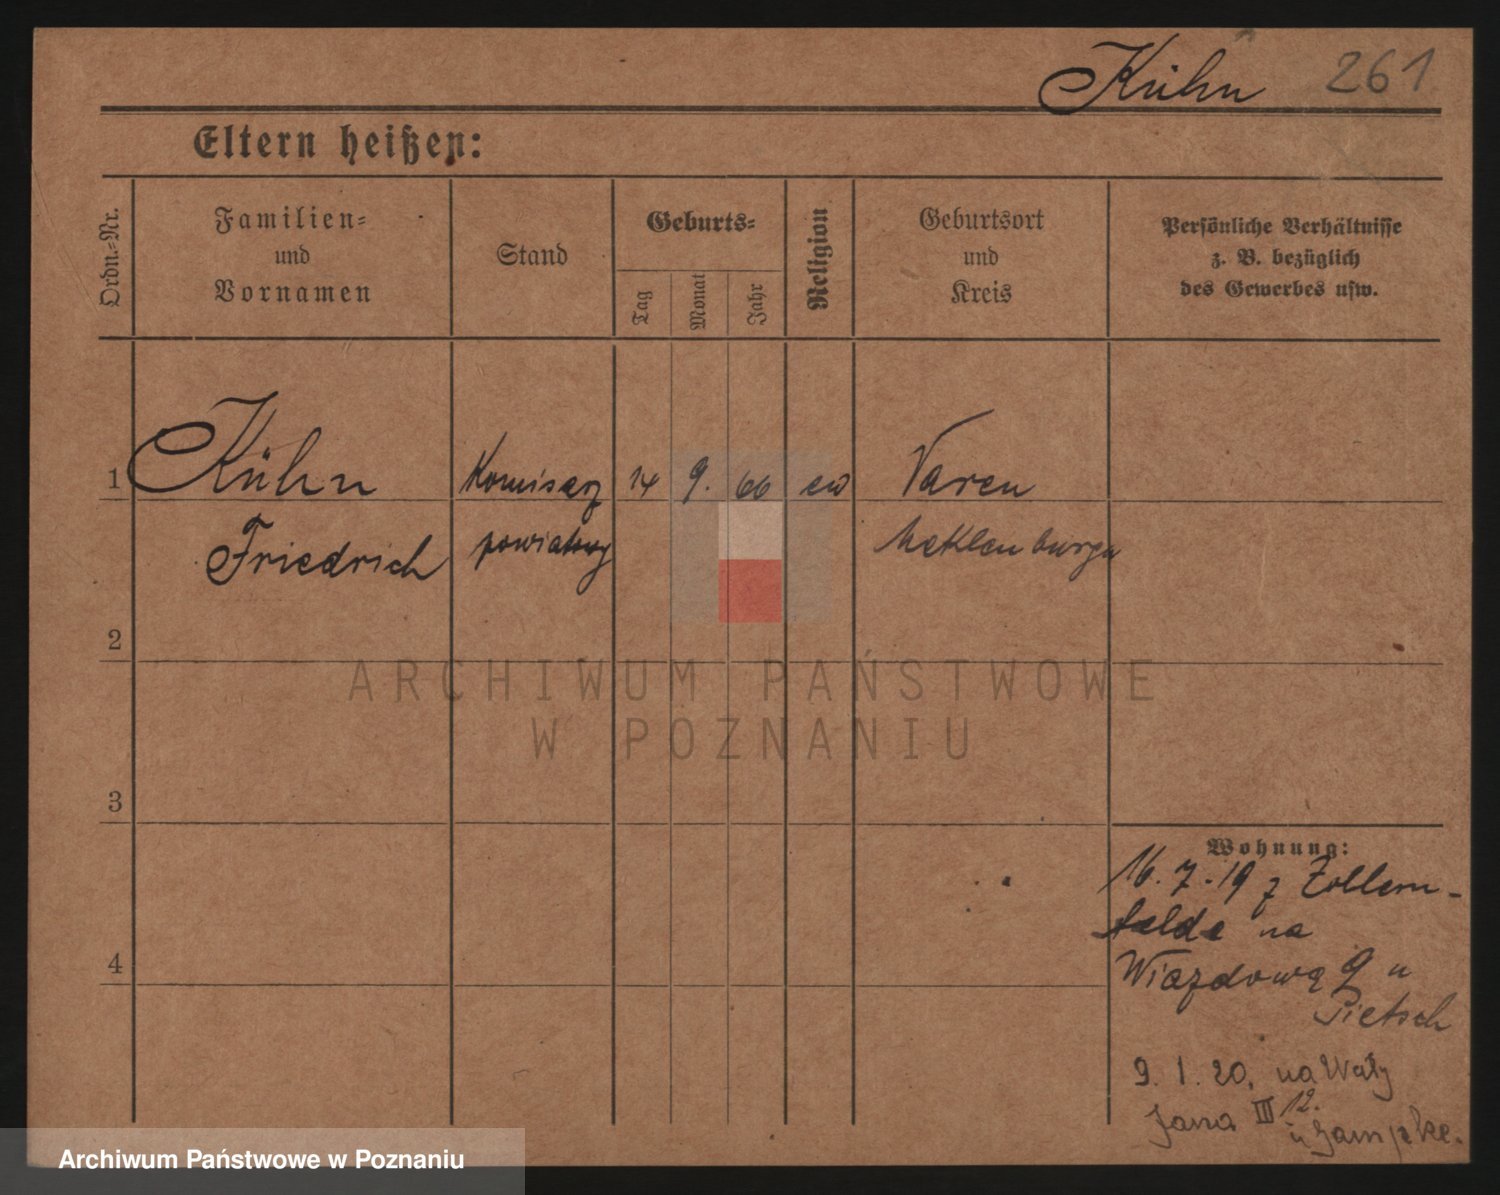 Kühn 261
Eltern heißen:
Ordn.=Nr.
Familien=
und
Vornamen
Stand
Geburts=
Tag
Monat
Jahr
Religion
Geburtsort
und
Kreis
Persönliche Verhältnisse
z. B. bezüglich
des Gewerbes usw.
1 Kühn Komisarz 14 9. 66 ew Varen
Friedrich powiatowy Meklenburgu
2
3
4
Wohnung:
16.7.19 z Zollern-
felde na
Wiazdową 9 u
Pietsch
9. 1. 20. na Wały
Jana III 12.
u
ARCHIWUM PAŃSTWOWE
W POZNANIU
Archiwum Państwowe w Poznaniu